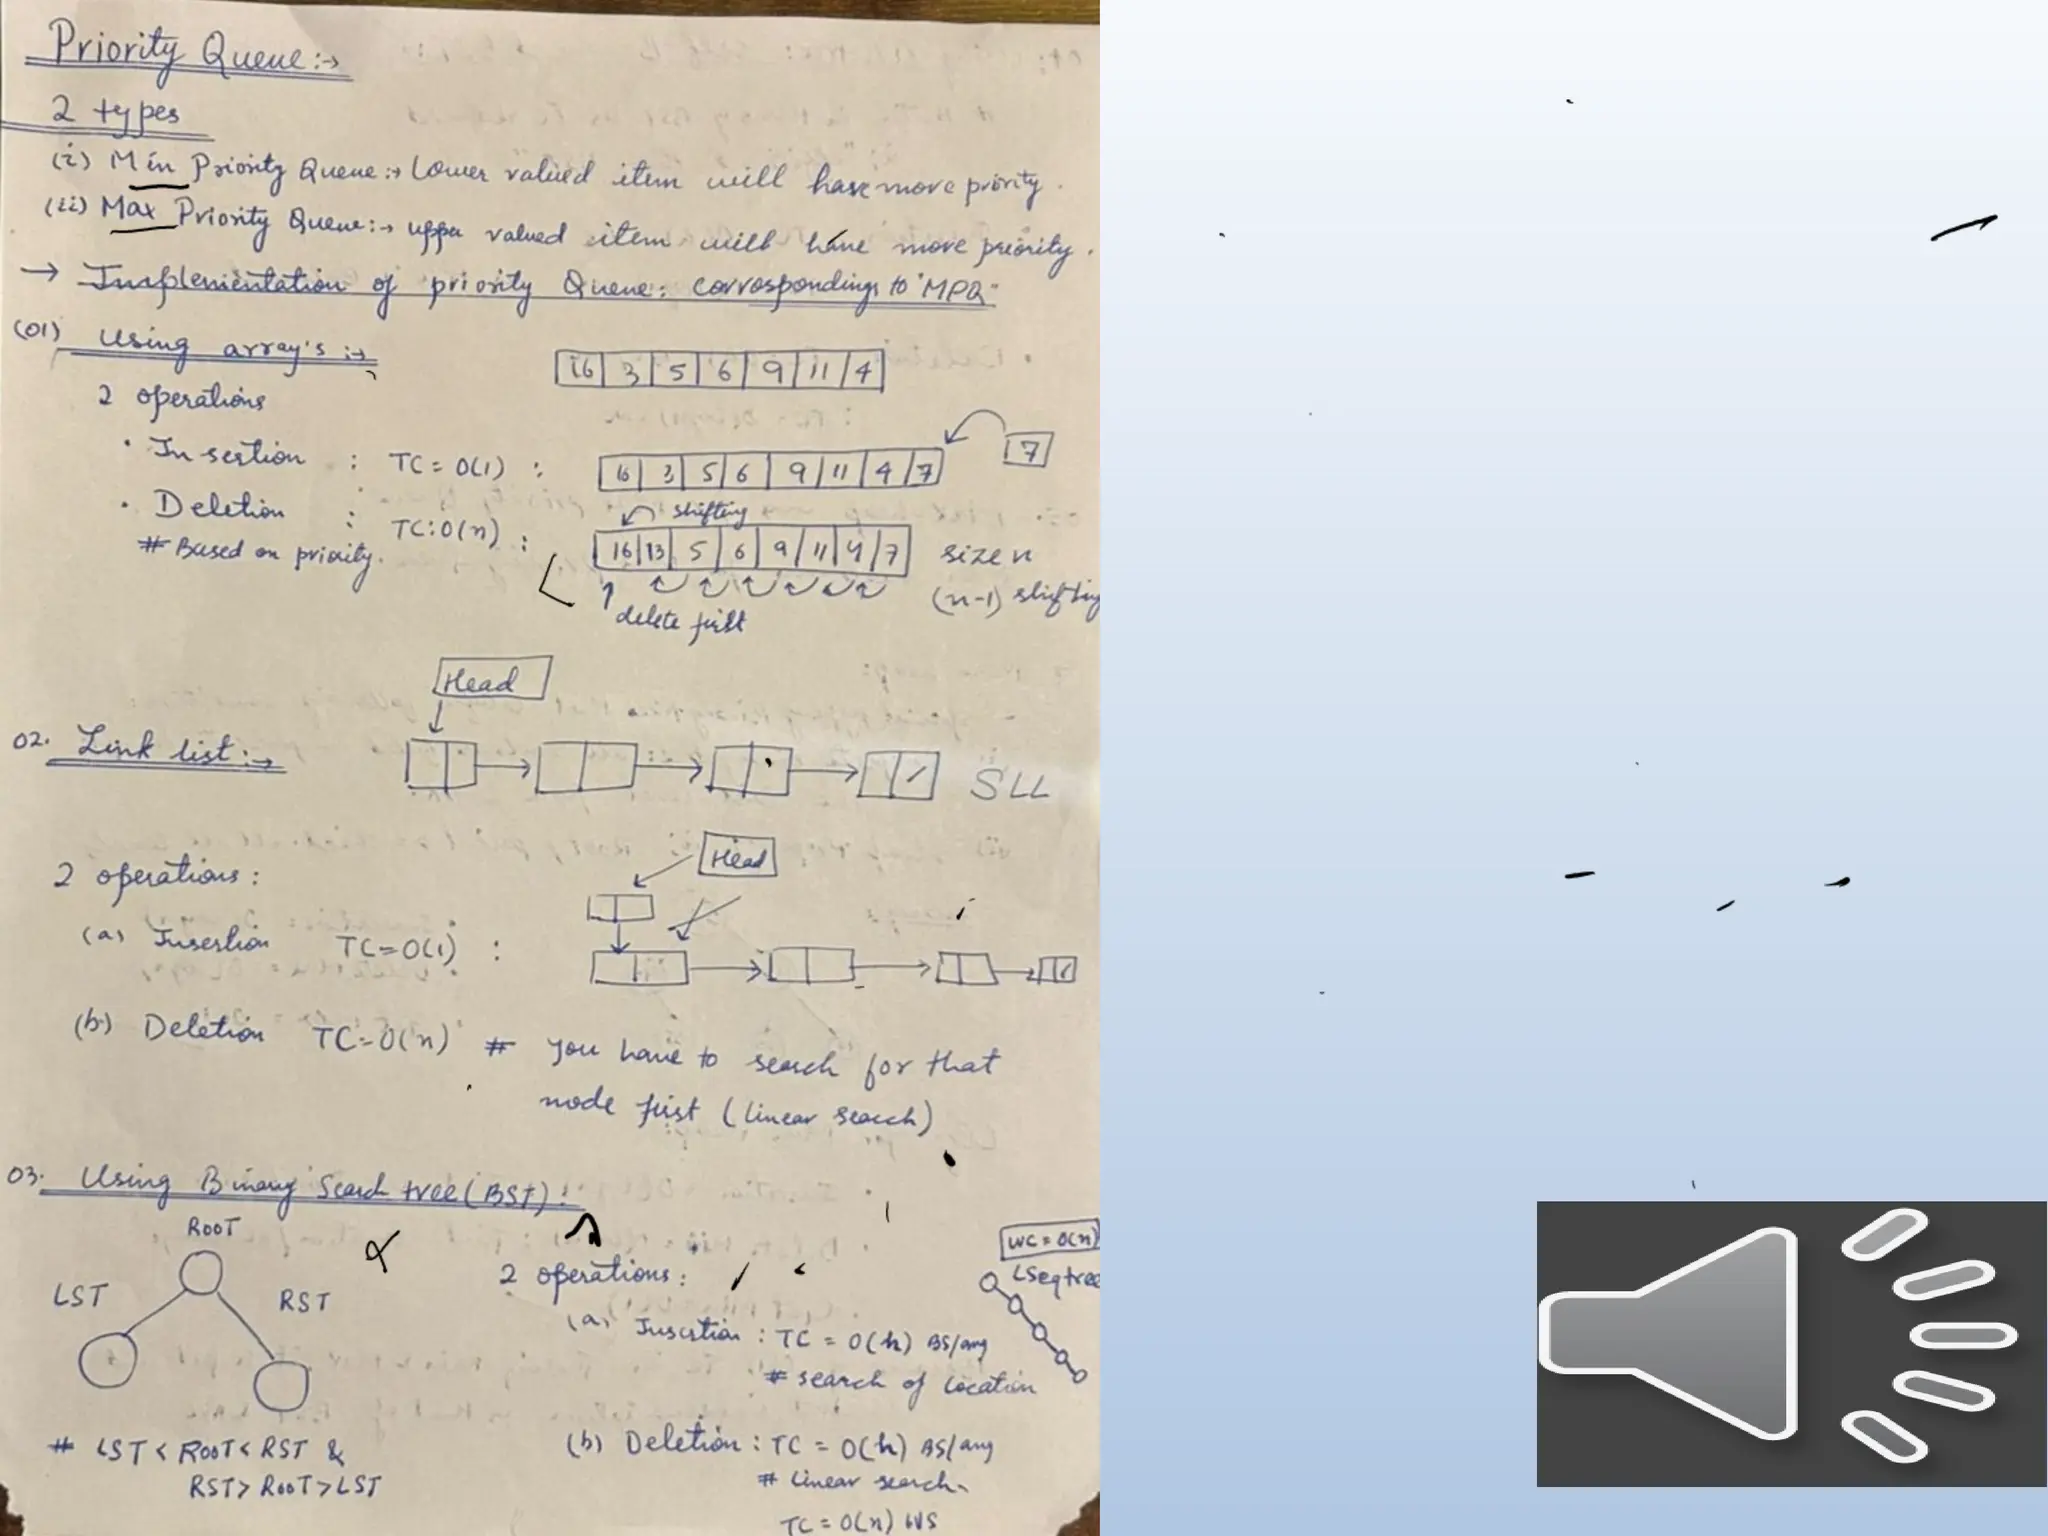 Priority Queue:→
2 types
(i) Min Priority Queue:→ Lower valued item will have more priority.
(ii) Max Priority Queue:→ upper valued item will have more priority.
→ Implementation of priority Queue: correspondings to "MPQ"
(01) Using array's :→
16 3 5 6 9 11 4
2 operations
• Insertion : TC = O(1) :
16 3 5 6 9 11 4 7
7
• Deletion : TC:O(n) :
# Based on priority.
shifting
16 13 5 6 9 11 4 7
size n
(n-1) shifting
delete first
Head
02. Link list:→
SLL
2 operations:
Head
(a) Insertion TC=O(1) :
(b) Deletion TC=O(n) # you have to search for that
node first (linear search)
03. Using Binary Search tree(BST):
ROOT
LST
RST
# LST < ROOT < RST &
RST > ROOT > LST
2 operations:
WC = O(n)
(a) Insertion : TC = O(h) BS/avg
# search of location
(b) Deletion : TC = O(h) BS/avg
# Linear search
TC = O(n) WS